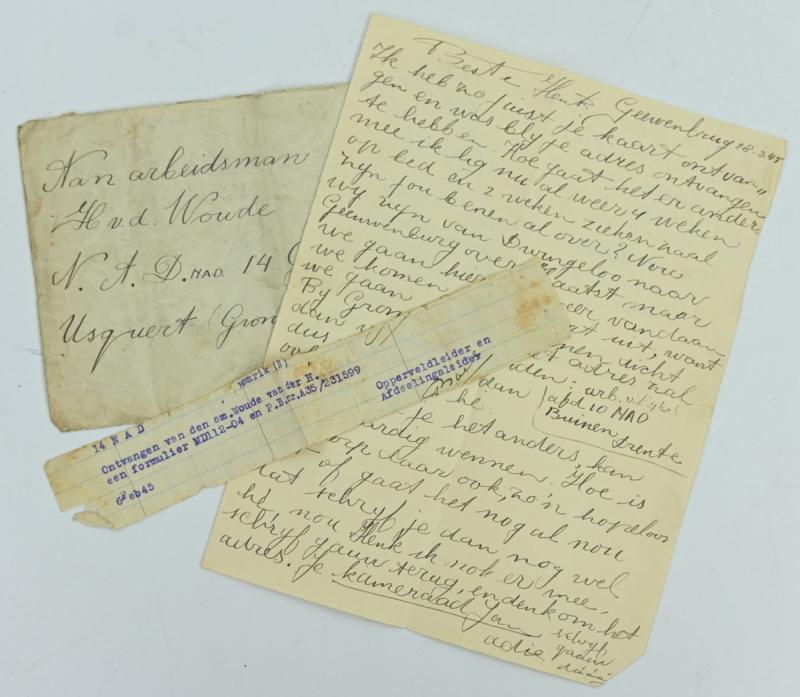 Aan arbeidsman
H v.d. Woude
N. A. D. NAD. 14
Usquert (Gron
14 N A D
emrik (N)
Ontvangen van den am.Woude van der H.
een formulier MD112-04 en P.B.nr.A35/231599
6 Feb45
Opperveldleider en
Afdeelingsleider
Beste Henk Geeuwenbrug 28.2.45
Ik heb zo juist je kaart ontvan"
gen en was bly je adres ontvangen
te hebben. Hoe gaat het er anders
mee ik lig nu al weer 4 weken
op bed en 2 weken ziekenzaal
zyn jou benen al over? Nou
wy zyn van Dwingeloo naar
Geeuwenburg over plaatst maar
we gaan hier weer vandaan
we komen rt uit, want
we gaan nen dicht
By Gron adres zal
dan w den: arb.
dus dan afd 10 NAD
Buinen Drente
he
je het anders, kan
ardig wennen. Hoe is
orp daar ook, zo'n hopeloos
of gaat het nog al nou
dat schryf je dan nog wel
hè, nou Henk ik nok er mee,
schryf gauw terug, en denk om het
adres. Je kameraad Jan
schryf
gauw
adie dààg